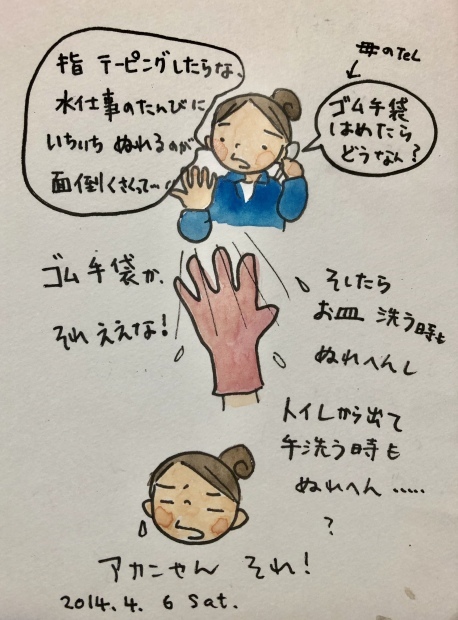 指 テーピングしたらな、
水仕事のたんびに
いちいち ぬれるのが
面倒くさくって〜
母のTEL
ゴム手袋
はめたら
どうなん?
ゴム手袋か、
それ ええな!
そしたら
お皿 洗う時も
ぬれへんし
トイレから出て
手洗う時も
ぬれへん……
?
アカンやん それ!
2014.4.6 Sat.